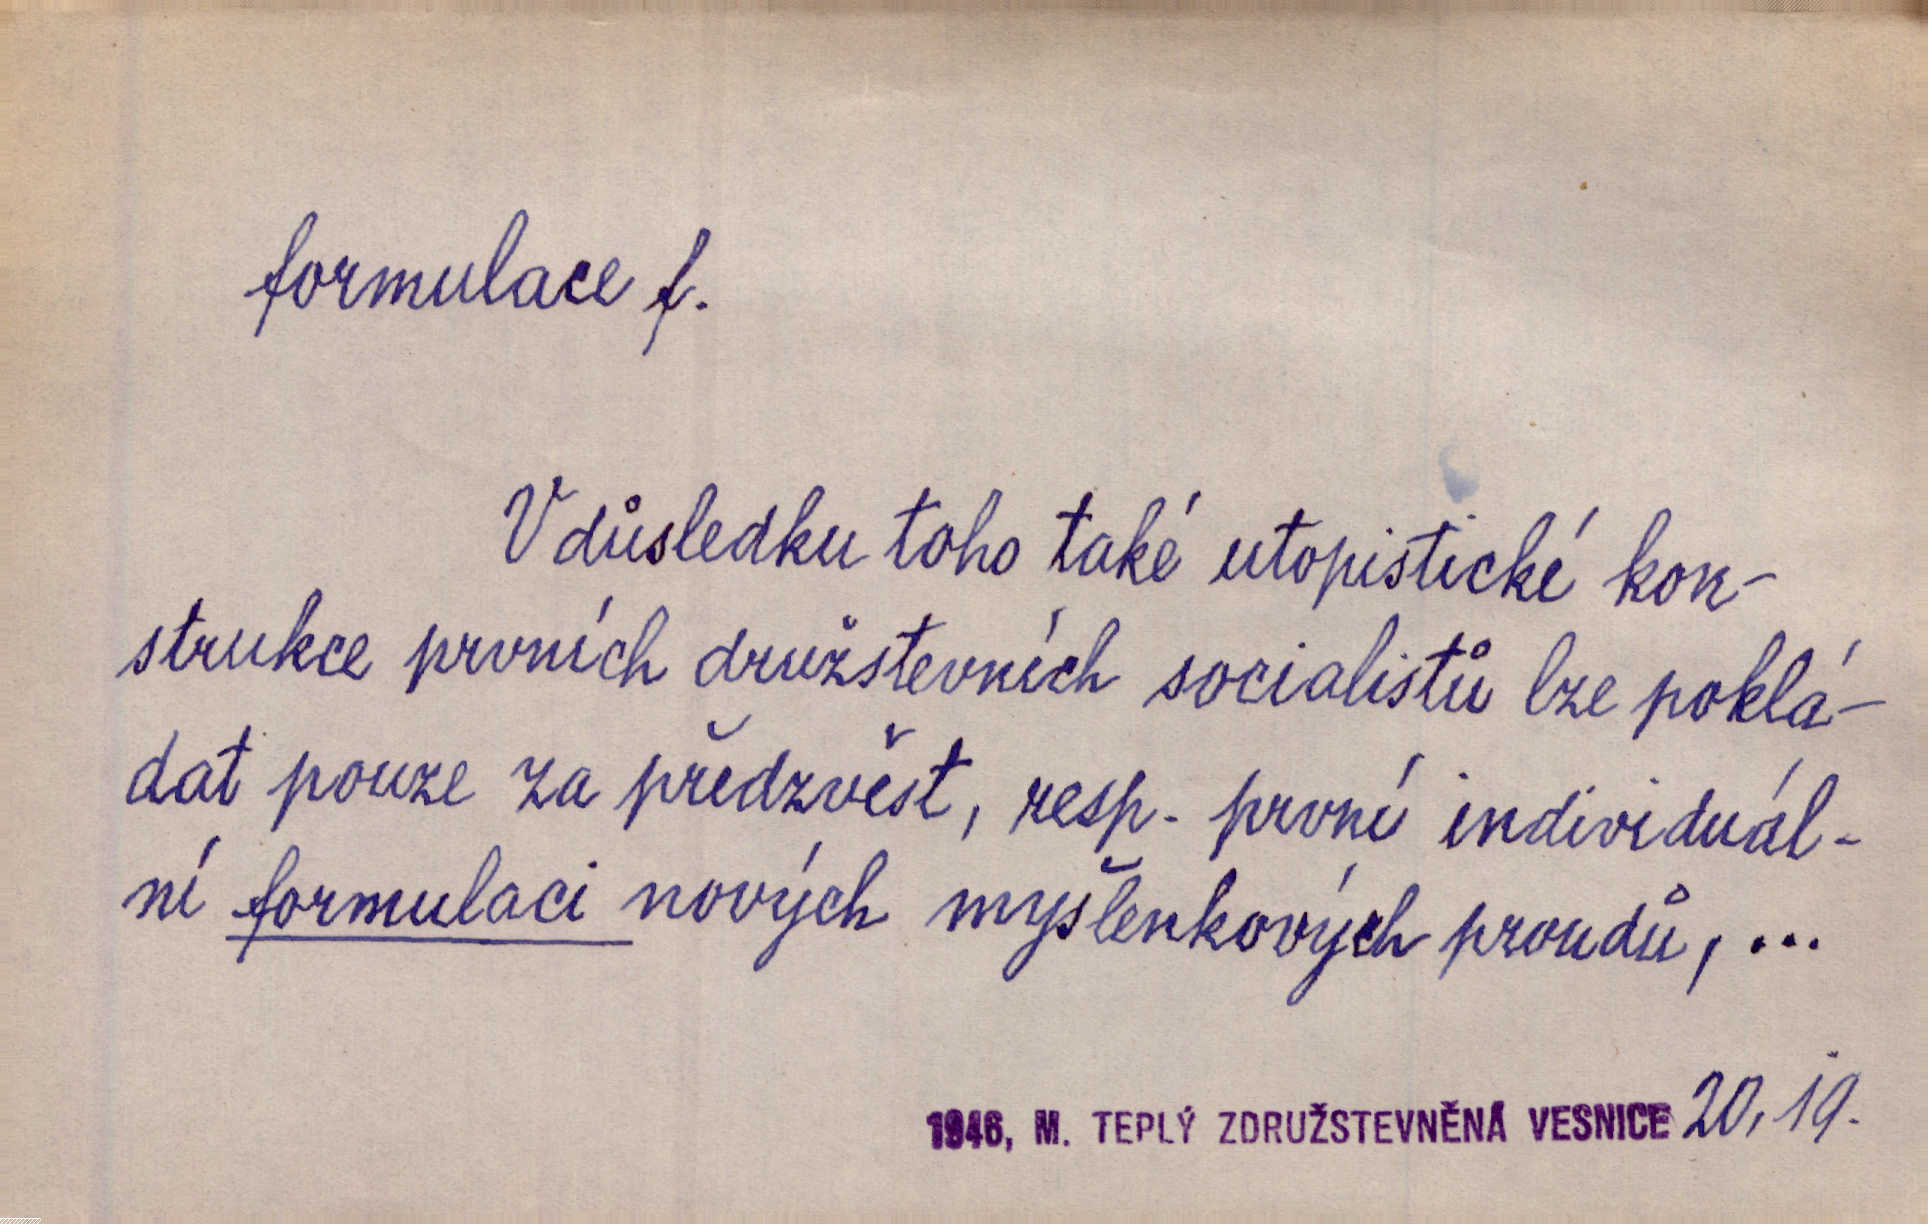 formulace f.
V důsledku toho také utopistické kon-
strukce prvních družstevních socialistů lze poklá-
dat pouze za předzvěst, resp. první individuál-
ní formulaci nových myšlenkových proudů, ...
1946, M. TEPLÝ ZDRUŽSTEVNĚNÁ VESNICE 20, 19.